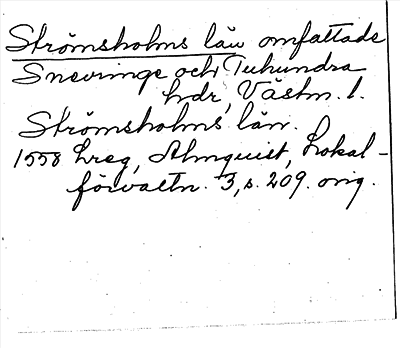 Strömsholms län omfattade
Snevringe och Tuhundra
hdr, Västm. l.
Strömsholms län.
1558 Lreg, Almquist, Lokal-
förvaltn. 3, s. 209. orig.